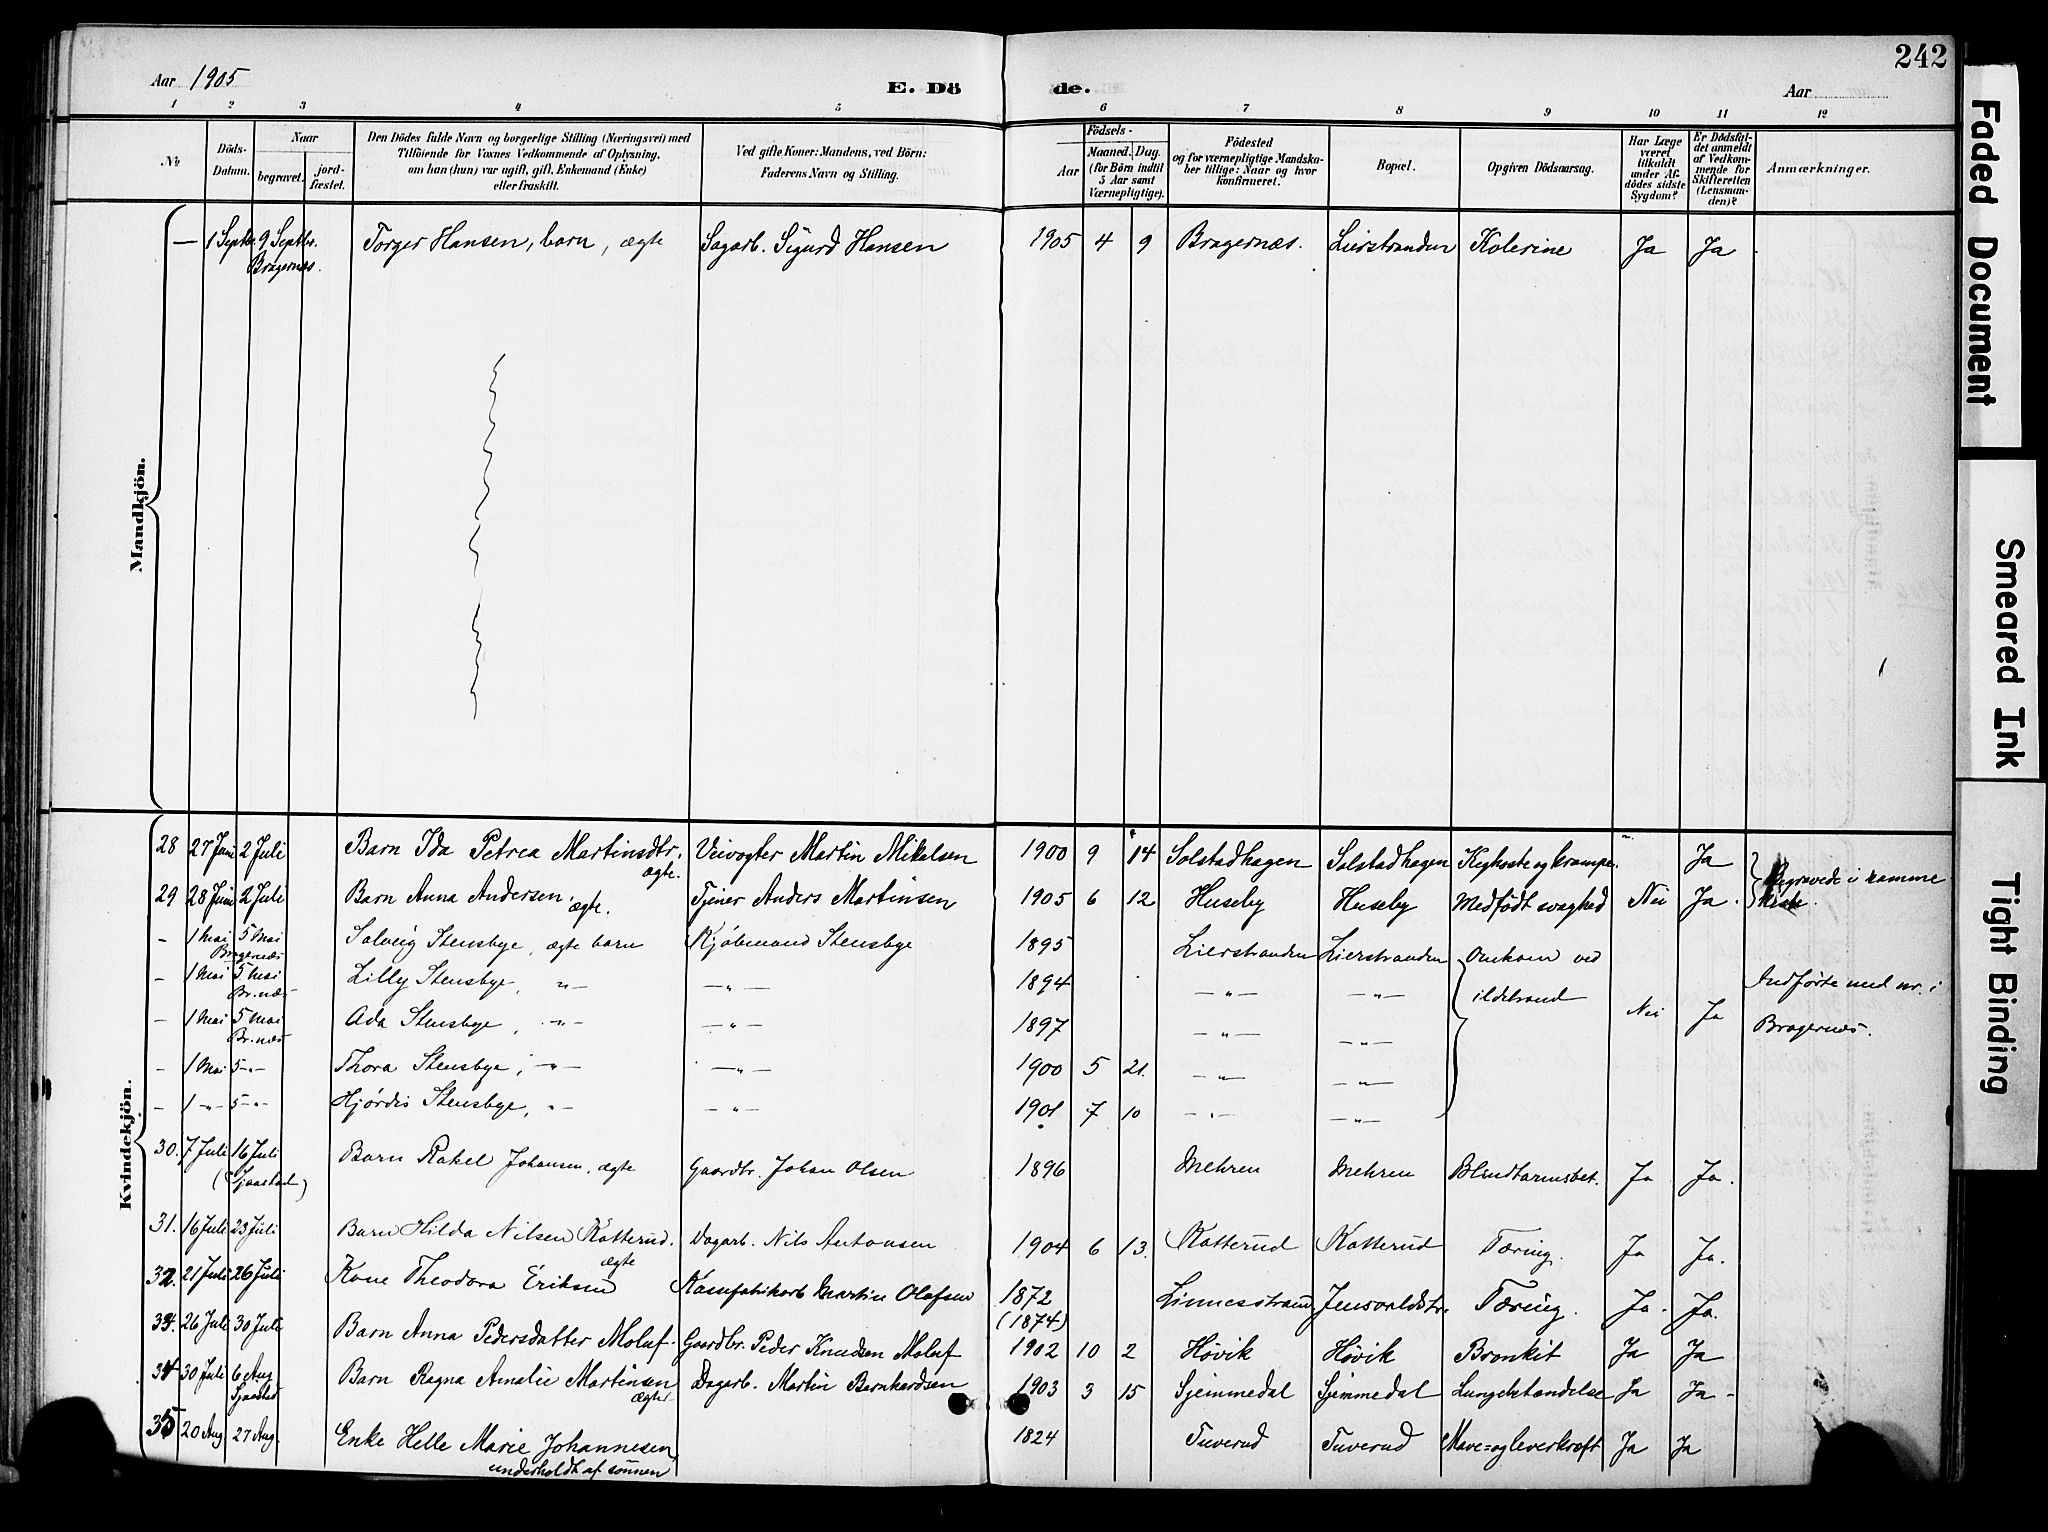 242
Aar 1905
E. Dö de.
Aar
1 2 3 4 5 6 7 8 9 10 11 12
No
Döds-Datum.
Naar
begravet.
jord-fæstet.
Den Dödes fulde Navn og borgerlige Stilling (Næringsvei) med
Tilföiende for Voxnes Vedkommende af Oplysning,
om han (hun) var ugift, gift, Enkemand (Enke)
eller fraskilt.
Ved gifte Koner: Mandens, ved Börn:
Faderens Navn og Stilling.
Födsels-
Aar
Maaned. Dag.
(for Börn indtil
5 Aar samt
Værnepligtige).
Födested
og for værnepligtige Mandska-
ber tillige: Naar og hvor
konfirmeret.
Bopæl.
Opgiven Dödsaarsag.
Har Læge
været
tilkaldt
under Af-
dödes sidste
Sygdom?
Er Dödsfal-
det anmeldt
af Vedkom-
mende for
Skifteretten
(Lensman-
den)?
Anmærkninger.
Mandkjön.
— 1 Septbr. 9 Septbr. Torger Hansen, barn, ægte Sagarb. Sigurd Hansen 1905 4 9 Bragernæs. Lierstranden Kolerine Ja Ja
Bragernæs.
Kvindekjön.
28 27 Juni 2 Juli Barn Ida Petrea Martinsdtr. Veivogter Martin Mikelsen 1900 9 14 Solstadhagen Solstadhagen Kighoste og krampe. Ja
ægte.
29 28 Juni 2 Juli Barn Anna Andersen, ægte. Tjener Anders Martinsen 1905 6 12 Huseby Huseby Medfödt svaghed Nei Ja. Begravede i samme
kiste.
- 1 Mai 5 Mai Solveig Stensbye, ægte barn Kjöbmand Stensbye 1895 Lierstranden Lierstranden Omkom ved
Bragernæs
- 1 Mai 5 Mai Lilly Stensbye, —"— —"— 1894 —"— —"— ildebrand Indförte med nr. i
Br.næs
- 1 Mai 5 Mai Ada Stensbye, —"— —"— 1897 —"— —"— Nei Ja Bragernæs.
Br.næs
- 1 Mai 5 —"— Thora Stensbye, —"— —"— 1900 5 21. —"— —"—
- 1 —"— 5 —"— Hjördis Stensbye, —"— —"— 1901 7 10 —"— —"—
30. 7 Juli 16 Juli Barn Rakel Johansen, ægte Gaardbr. Johan Olsen 1896 Mehren Mehren Blindtarmsbet. Ja Ja.
(Sjaastad)
31. 16 Juli 23 Juli Barn Hilda Nilsen Katterud. Dagarb. Nils Antonsen 1904 6 13. Katterud Katterud Tæring. Ja Ja.
ægte
32. 21 Juli 26 Juli Kone Theodora Eriksen Kassefabrikarb Martin Olafsen 1872 Linnesstrand Jensvoldstr. Tæring. Ja. Ja.
(1874)
33. 26 Juli 30 Juli Barn Anna Pedersdatter Moluf. Gaardbr. Peder Knudsen Moluf 1902 10 2 Hövik Hövik Bronkit Ja Ja
34 30 Juli 6 Aug Barn Ragna Amalie Martinsen Dagarb. Martin Bernhardsen 1903 3 15 Gjemmedal Gjemmedal Lungebetændelse Ja Ja
Sjaastad ægte
35 20 Aug 27 Aug. Enke Helle Marie Johannesen 1824 Tuverud Tuverud Mave- og leverkræft Ja Ja
underholdt af sönnen
Faded Document
Smeared Ink
Tight Binding